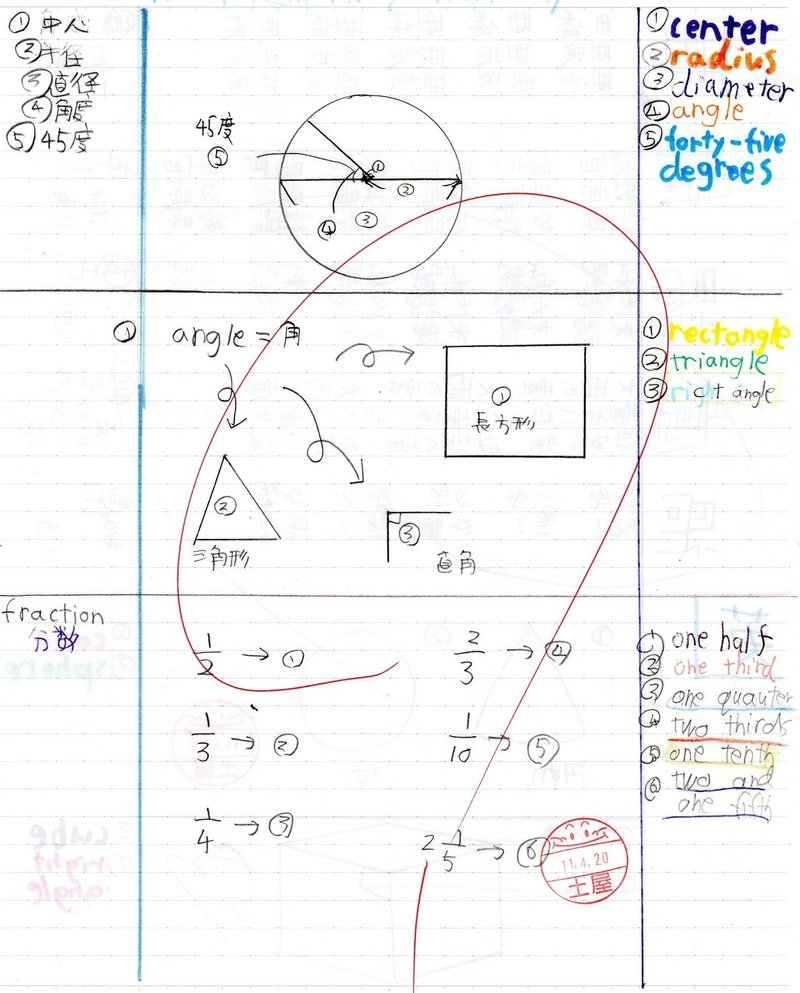 ① 中心
② 半径
③ 直径
④ 角度
⑤ 45度
45度
⑤
①
②
③
④
① center
② radius
③ diameter
④ angle
⑤ forty-five
degrees
① angle = 角
①
長方形
②
三角形
③
直角
① rectangle
② triangle
③ right angle
fraction
分数
1/2 → ①
2/3 → ④
1/3 → ②
1/10 → ⑤
1/4 → ③
2 1/5 → ⑥
11.4.20
土屋
① one half
② one third
③ one quauter
④ two thirds
⑤ one tenth
⑥ two and
one fifth
sphere
cube
right
angle